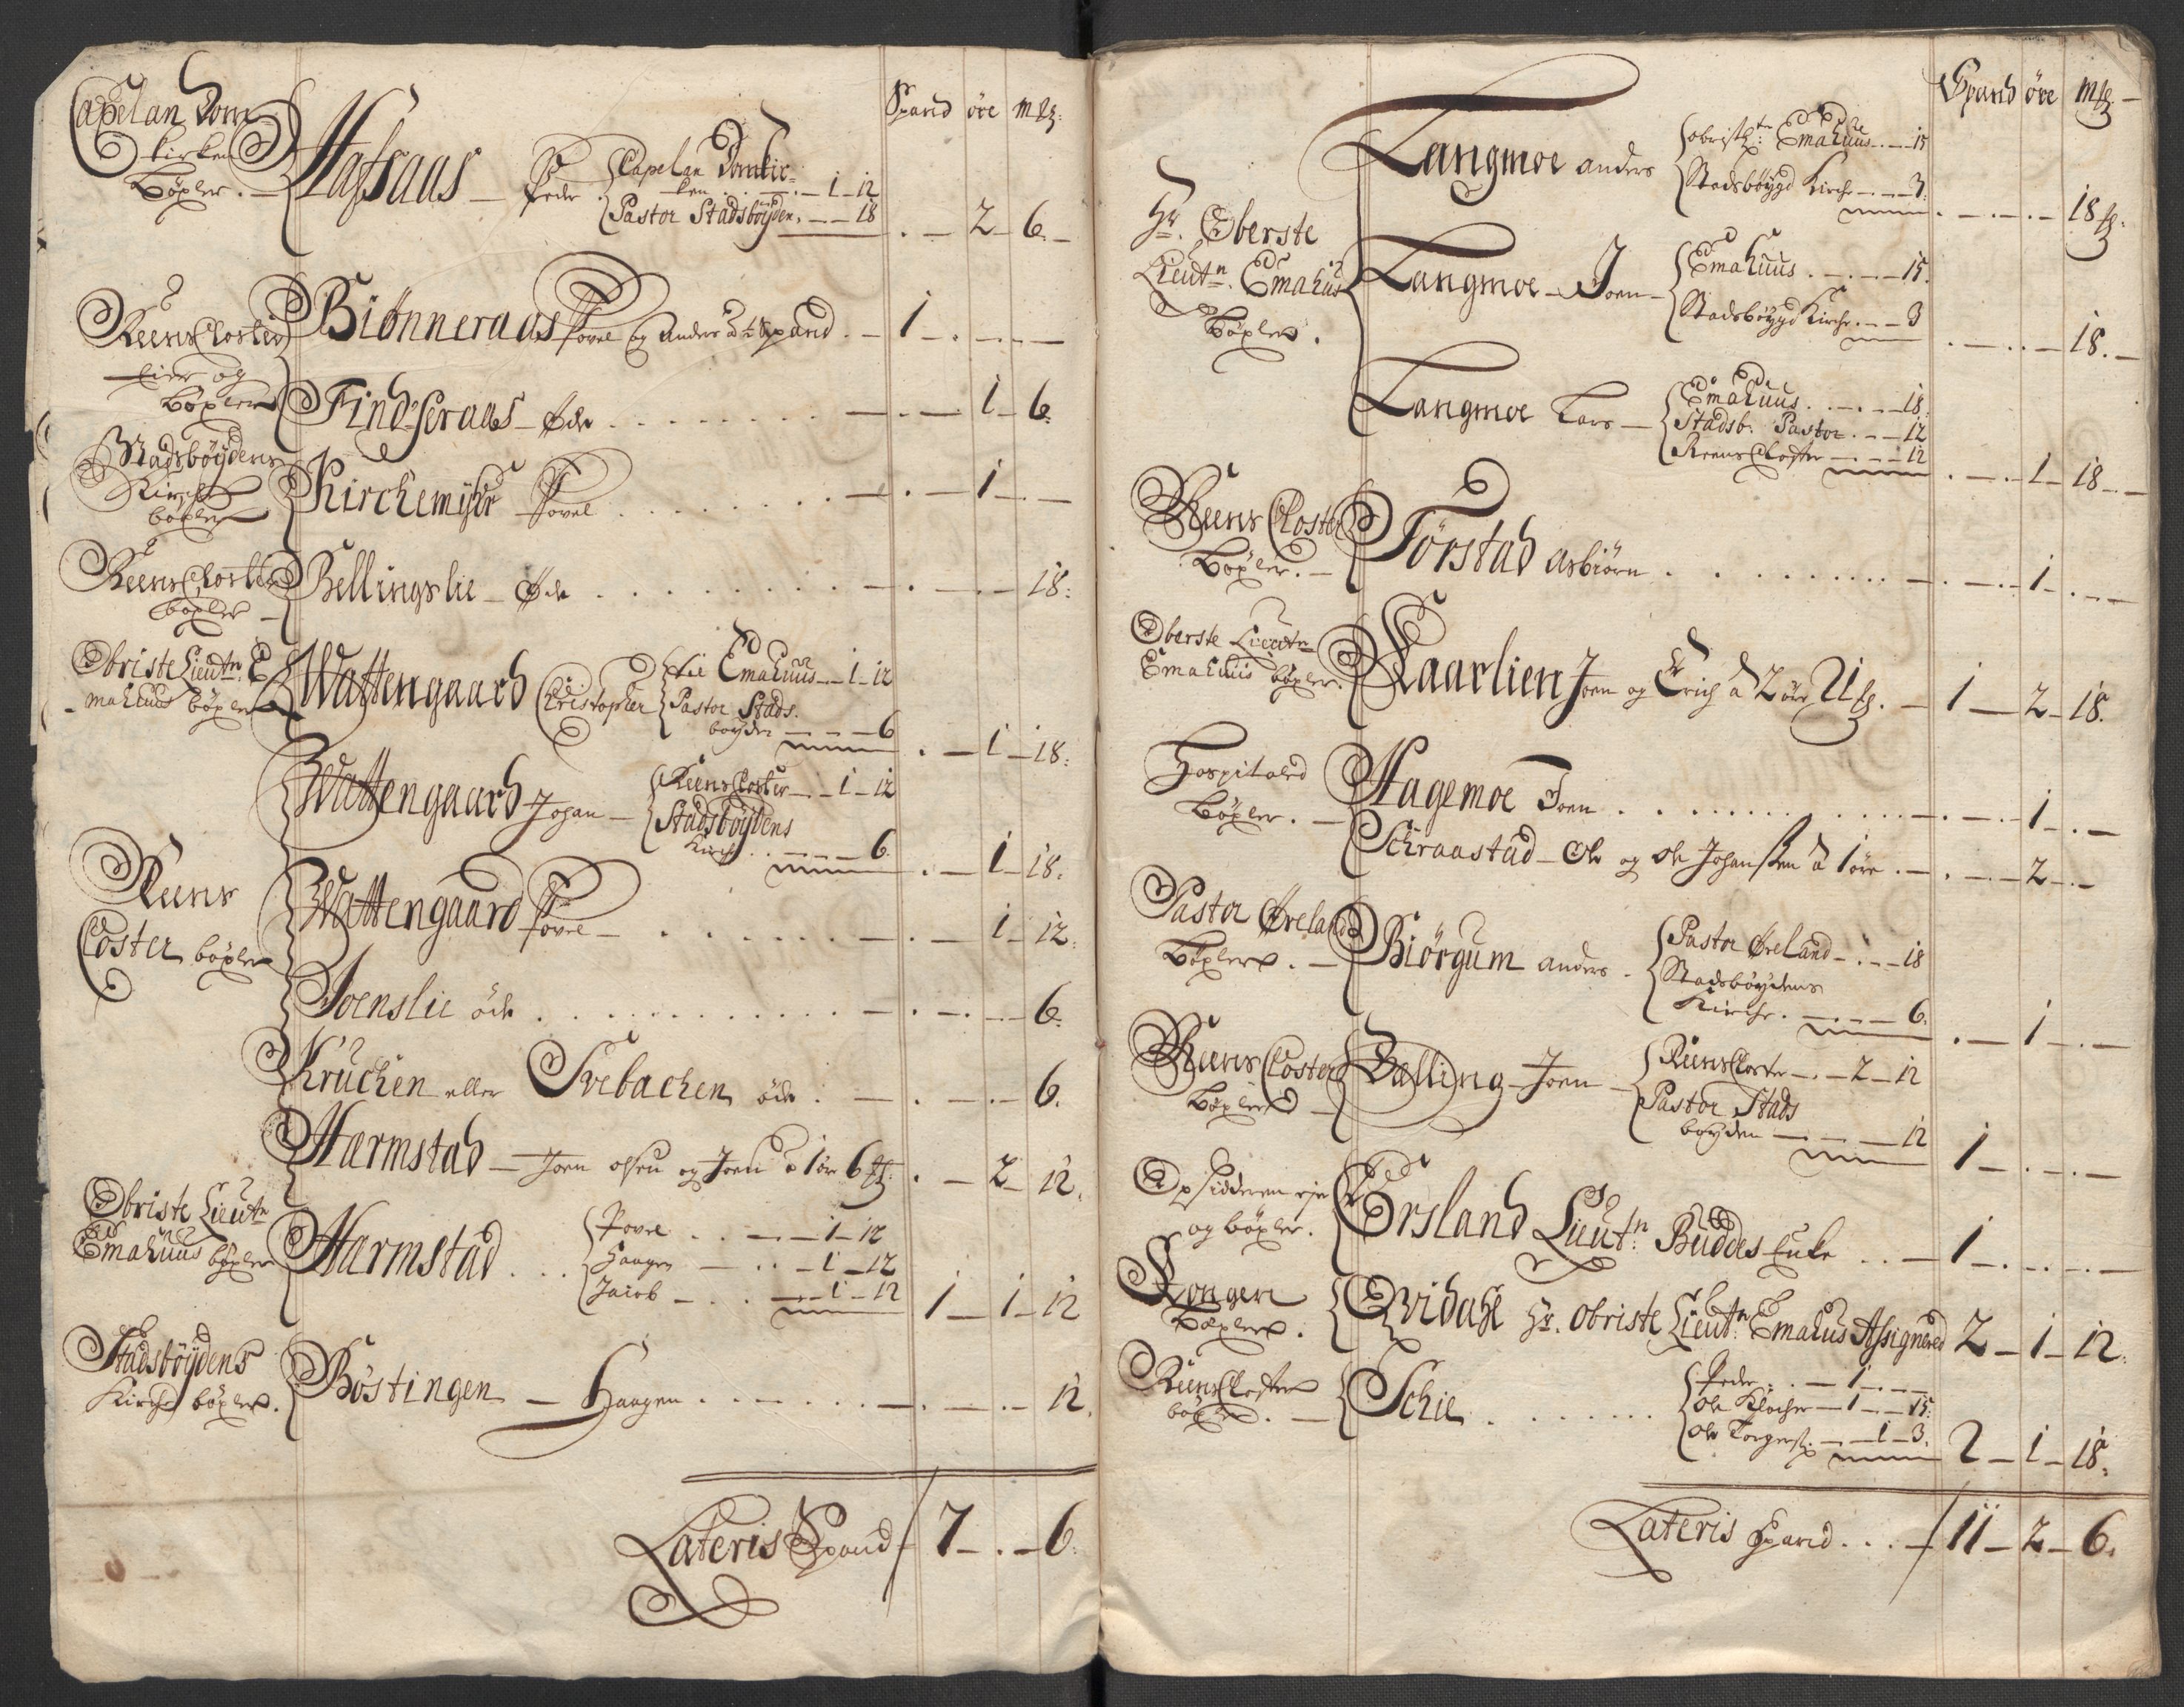 Spand öre mk
Capelan Dom
kirken
böxler.
Hafsaas Peder
Capelan Domkir=
ken 1 - 12
Pastor Stadsböyden. 18
. - 2 - 6.
Reens Closter
eier og
böxler
Biönneraas Povel og Anders a ½ Spand. 1 - . -
Findseraas öde . . . 1 - 6.
Stadsböydens
Kirche
böxler
Kirchemyhr Povel . . . 1 - . -
Reens Closter
böxler
Bellingslie Öde . . . 18.
Obriste Lieutn. E
mahuus böxler
Wattengaard Christopher
til Emahuus 1 - 12
Pastor Stads.
böyden 6
. - 1 - 18.
Wattengaard Johan
Reens Closter 1 - 12
Stadsböydens
Kirche 6.
. - 1 - 18.
Reens
Closter böxler
Wattengaard Povel . . . 1 - 12.
Joenslie öde . . . 6.
Krüchen eller Svebachen öde . . . 6.
Harmstad Joen olsen og Joen a 1 ör 6 . - 2 - 12.
Obriste Lieutn
Emahuus böxler
Harmstad . . .
Povel . . 1 - 12
Haagen . . 1 - 12
Jacob . . 1 - 12
1 - 1 - 12
Stadsböydens
Kirche böxler.
Böstingen Haagen . . . 12.
Lateris Spand 7 - . - 6.
Spand öre mk
Hr. Oberste
Lieutn. Emahus
böxler.
Langmoe anders
obristl: Emahuus 15
Stadsböygd Kirche 3.
18.
Langmoe Joen
Emahuus . 15.
Stadsböygd Kirche 3
18.
Langmoe Lars
Emahuus . 18.
Stadsb. Pastor 12
Reens Closter 12
. - 1 - 18
Reens Closter
böxler.
Törstad asbiörn . . . 1 - . -
Oberste Lieutn
Emahuus böxler.
Kaarlien Joen og Erich a 2 öre 21 1 - 2 - 18.
Hospitalet
böxler.
Hagemoe Joen . . . 1 - . -
Schraastad Ole og ole Johansen a 1 öre . 2 - . -
Pastor Öreland
böxler.
Biörgum anders
Pastor Öreland 18
Stadsböydens
Kirche. 6.
. - 1 - . -
Reens Closter
böxler
Balling Joen
Reens Closter 2 - 12
Pastor Stads
böyden 12
1 - . -
Opsidderen eje
og böxler.
Örsland Lieutn: Büddes Enke . . 1 - . -
Kongen
böxler.
Qvidahl Hr. Obriste Lieutn. Emahus Assigneret 2 - 1 - 12.
Reens Closter
böxler.
Schie . . .
Peder 1 - . -
Ole Klocher 1 - 15.
Ole Torgers: 1 - 3.
2 - 1 - 18.
Lateris Spand . . . 11 - 2 - 6.